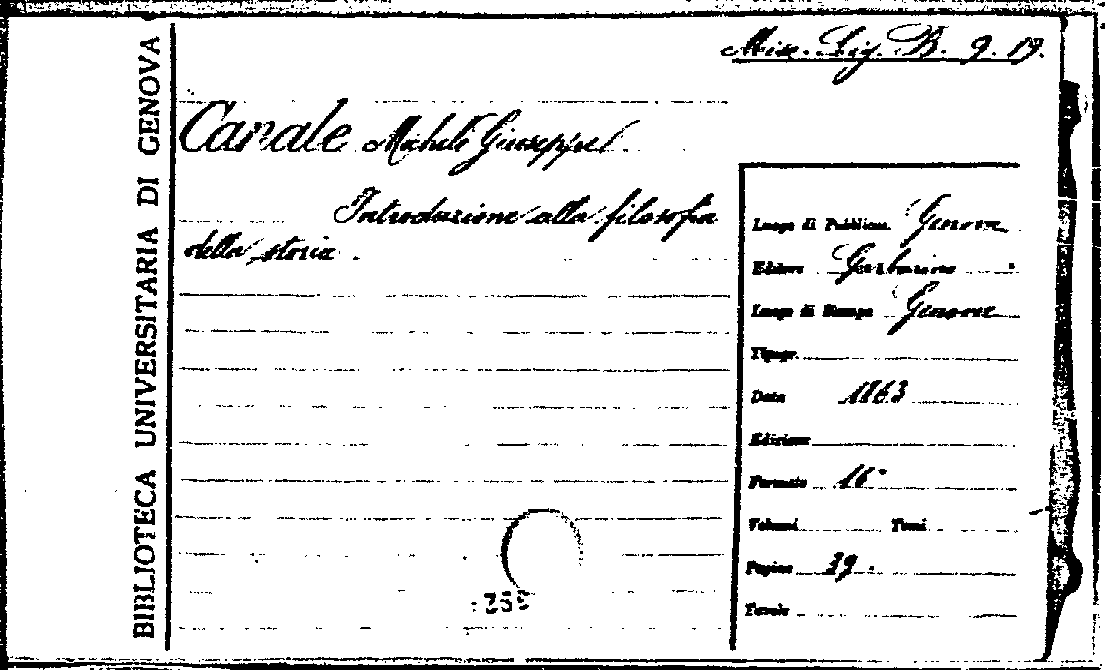 Misc. Lig. B. 9. 19.
BIBLIOTECA UNIVERSITARIA DI GENOVA
Canale Michele Giuseppe
Introduzione alla filosofia
della storia.
Luogo di Pubblicaz. Genova
Editore Garbarino
Luogo di Stampa Genova
Tipogr.
Data 1863
Edizione
Formato 16°
Volumi Tomi
Pagine 39.
Tavole